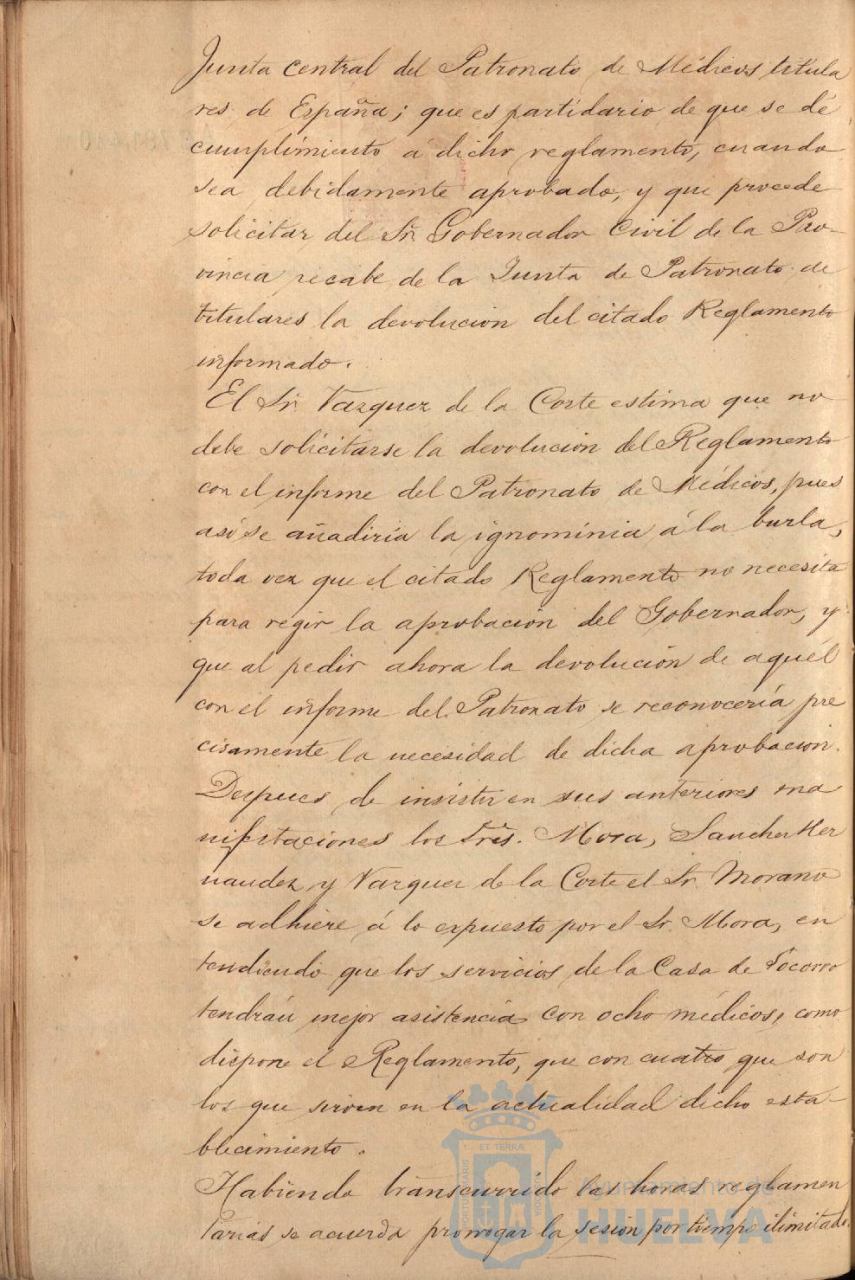 Junta central del Patronato de Médicos titula
res de España; que es partidario de que se dé
cumplimiento á dicho reglamento, cuando
sea debidamente aprobado, y que procede
solicitar del Sr. Gobernador Civil de la Pro-
vincia recabe de la Junta de Patronato de
titulares la devolucion del citado Reglamento
informado.
El Sr. Vazquez de la Corte estima que no
debe solicitarse la devolucion del Reglamento
con el informe del Patronato de Médicos, pues
así se añadiría la ignominia á la burla,
toda vez que el citado Reglamento no necesita
para regir la aprobacion del Gobernador, y
que al pedir ahora la devolución de aquél
con el informe del Patronato se reconocería pre
cisamente la necesidad de dicha aprobacion.
Despues de insistir en sus anteriores ma
nifestaciones los Sres. Mora, Sanchez Her
nandez y Vazquez de la Corte el Sr. Morano
se adhiere á lo expuesto por el Sr. Mora, en
tendiendo que los servicios de la Casa de Socorro
tendrán mejor asistencia con ocho médicos, como
dispone el Reglamento, que con cuatro que son
los que sirven en la actualidad dicho esta-
blecimiento.
Habiendo transcurrido las horas reglamen
tarias se acuerda prorrogar la sesion por tiempo ilimitado.
Ayuntamiento de
HUELVA